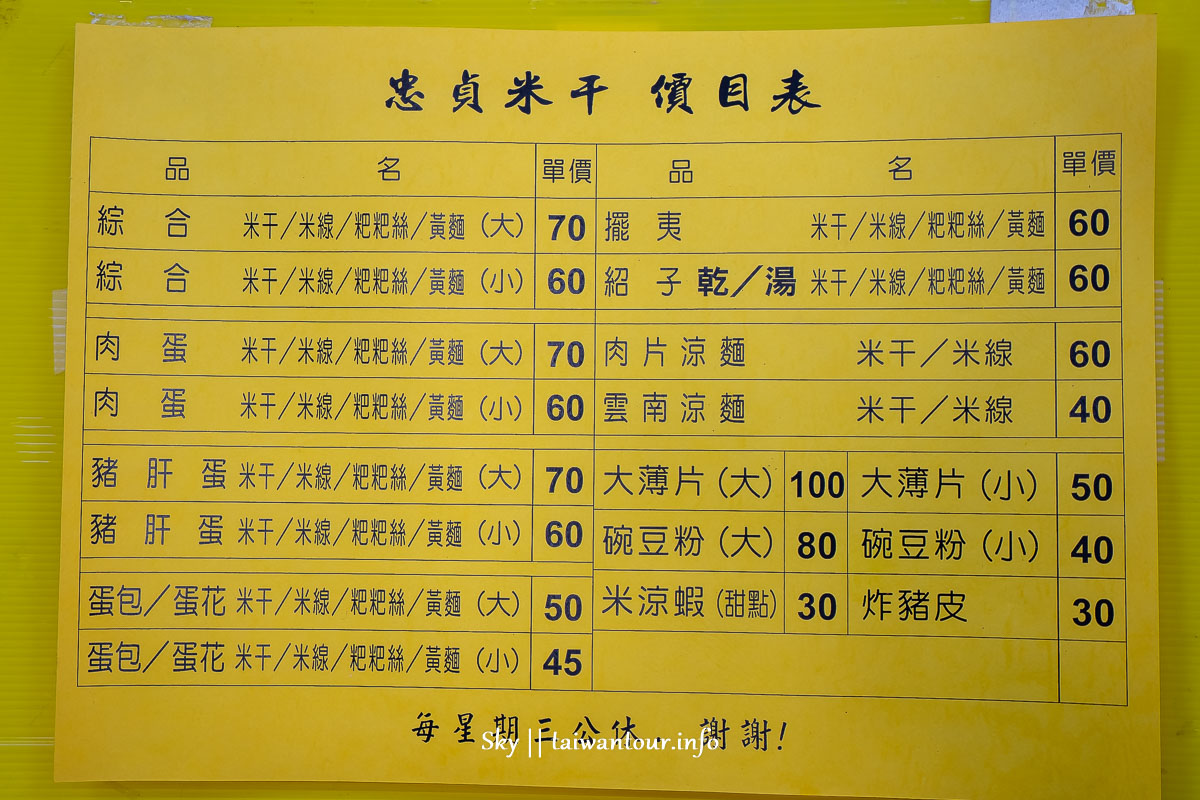 忠貞米干 價目表
品 名 單價 品 名 單價
綜 合 米干/米線/粑粑絲/黃麵 (大) 70 擺 夷 米干/米線/粑粑絲/黃麵 60
綜 合 米干/米線/粑粑絲/黃麵 (小) 60 紹 子 乾/湯 米干/米線/粑粑絲/黃麵 60
肉 蛋 米干/米線/粑粑絲/黃麵 (大) 70 肉片涼麵 米干/米線 60
肉 蛋 米干/米線/粑粑絲/黃麵 (小) 60 雲南涼麵 米干/米線 40
豬 肝 蛋 米干/米線/粑粑絲/黃麵 (大) 70 大薄片 (大) 100 大薄片 (小) 50
豬 肝 蛋 米干/米線/粑粑絲/黃麵 (小) 60 碗豆粉 (大) 80 碗豆粉 (小) 40
蛋包/蛋花 米干/米線/粑粑絲/黃麵 (大) 50 米涼蝦 (甜點) 30 炸豬皮 30
蛋包/蛋花 米干/米線/粑粑絲/黃麵 (小) 45
每星期三公休，謝謝!
Sky || taiwantour.info